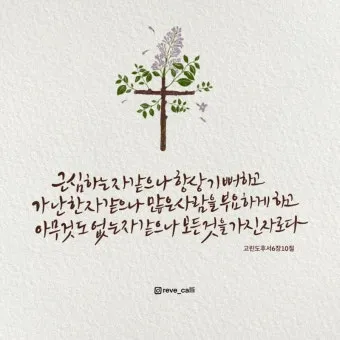 근심하는 자 같으나 항상 기뻐하고
가난한 자 같으나 많은 사람을 부요하게 하고
아무것도 없는 자 같으나 모든 것을 가진 자로다
고린도후서6장10절
reve_calli